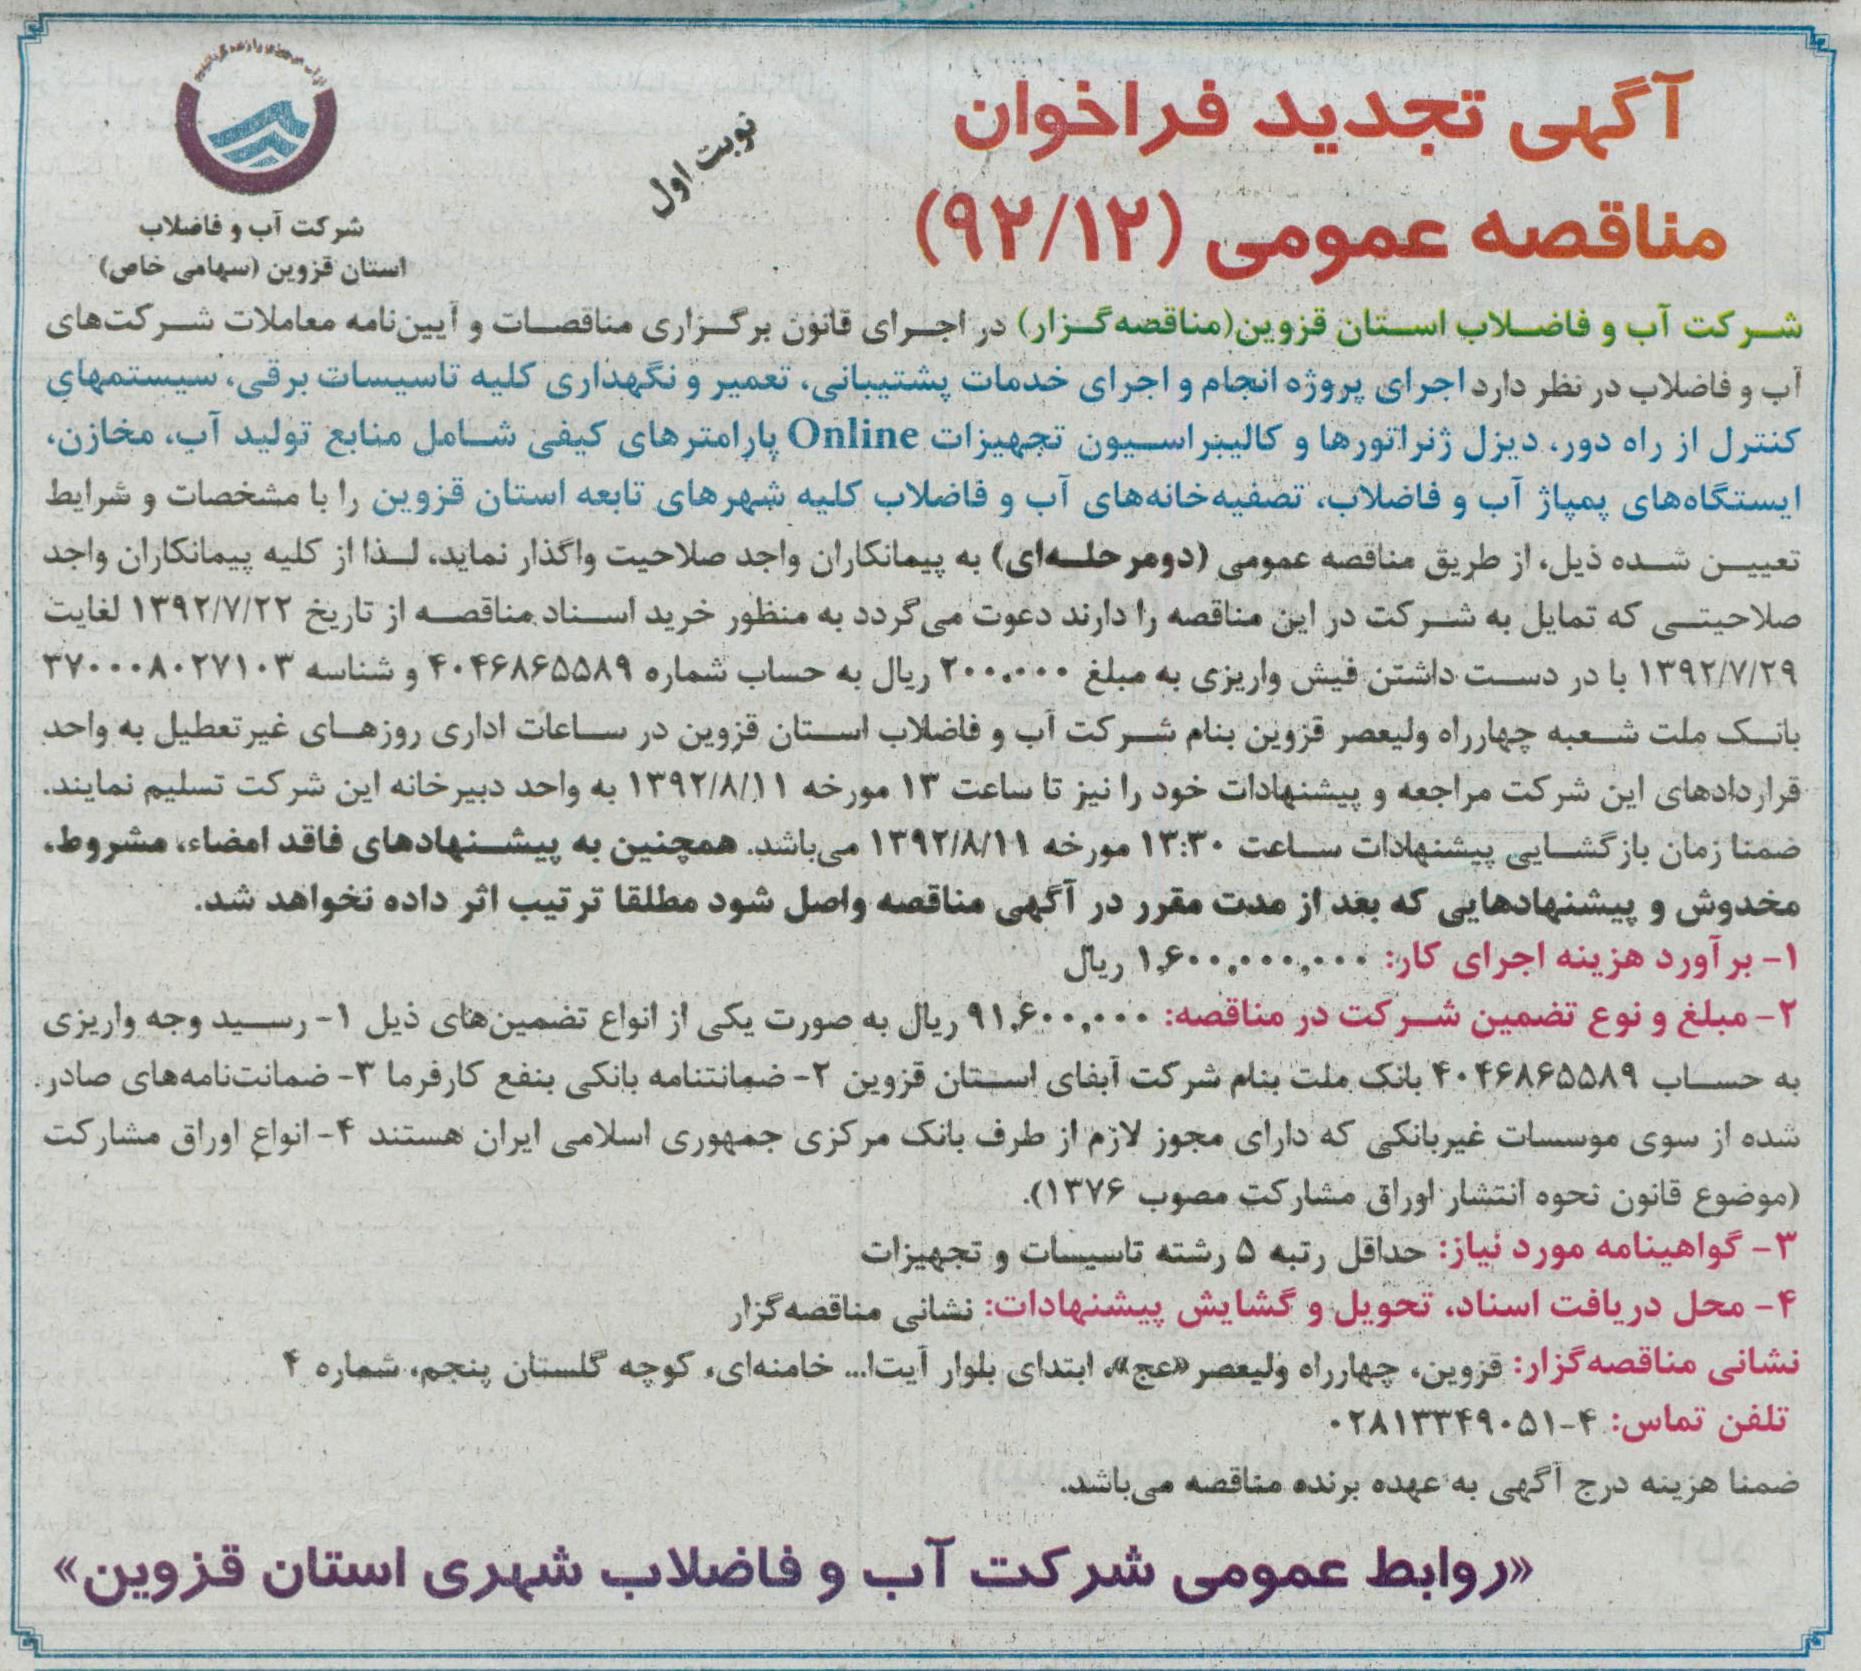 آگهی تجدید فراخوان
مناقصه عمومی (۹۲/۱۲)
نوبت اول
شرکت آب و فاضلاب
استان قزوین (سهامی خاص)
شرکت آب و فاضلاب استان قزوین(مناقصه‌گزار) در اجرای قانون برگزاری مناقصات و آیین‌نامه معاملات شرکت‌های
آب و فاضلاب در نظر دارد اجرای پروژه انجام و اجرای خدمات پشتیبانی، تعمیر و نگهداری کلیه تاسیسات برقی، سیستمهای
کنترل از راه دور، دیزل ژنراتورها و کالیبراسیون تجهیزات Online پارامترهای کیفی شامل منابع تولید آب، مخازن،
ایستگاه‌های پمپاژ آب و فاضلاب، تصفیه‌خانه‌های آب و فاضلاب کلیه شهرهای تابعه استان قزوین را با مشخصات و شرایط
تعیین شده ذیل، از طریق مناقصه عمومی (دومرحله‌ای) به پیمانکاران واجد صلاحیت واگذار نماید، لذا از کلیه پیمانکاران واجد
صلاحیتی که تمایل به شرکت در این مناقصه را دارند دعوت می‌گردد به منظور خرید اسناد مناقصه از تاریخ ۱۳۹۲/۷/۲۲ لغایت
۱۳۹۲/۷/۲۹ با در دست داشتن فیش واریزی به مبلغ ۲۰۰,۰۰۰ ریال به حساب شماره ۴۰۴۶۸۶۵۵۸۹ و شناسه ۳۷۰۰۰۸۰۲۷۱۰۳
بانک ملت شعبه چهارراه ولیعصر قزوین بنام شرکت آب و فاضلاب استان قزوین در ساعات اداری روزهای غیرتعطیل به واحد
قراردادهای این شرکت مراجعه و پیشنهادات خود را نیز تا ساعت ۱۳ مورخه ۱۳۹۲/۸/۱۱ به واحد دبیرخانه این شرکت تسلیم نمایند.
ضمنا زمان بازگشایی پیشنهادات ساعت ۱۳:۳۰ مورخه ۱۳۹۲/۸/۱۱ می‌باشد. همچنین به پیشنهادهای فاقد امضاء، مشروط،
مخدوش و پیشنهادهایی که بعد از مدت مقرر در آگهی مناقصه واصل شود مطلقا ترتیب اثر داده نخواهد شد.
۱- برآورد هزینه اجرای کار: ۱,۶۰۰,۰۰۰,۰۰۰ ریال
۲- مبلغ و نوع تضمین شرکت در مناقصه: ۹۱,۶۰۰,۰۰۰ ریال به صورت یکی از انواع تضمین‌های ذیل ۱- رسید وجه واریزی
به حساب ۴۰۴۶۸۶۵۵۸۹ بانک ملت بنام شرکت آبفای استان قزوین ۲- ضمانتنامه بانکی بنفع کارفرما ۳- ضمانت‌نامه‌های صادر
شده از سوی موسسات غیربانکی که دارای مجوز لازم از طرف بانک مرکزی جمهوری اسلامی ایران هستند ۴- انواع اوراق مشارکت
(موضوع قانون نحوه انتشار اوراق مشارکت مصوب ۱۳۷۶).
۳- گواهینامه مورد نیاز: حداقل رتبه ۵ رشته تاسیسات و تجهیزات
۴- محل دریافت اسناد، تحویل و گشایش پیشنهادات: نشانی مناقصه‌گزار
نشانی مناقصه‌گزار: قزوین، چهارراه ولیعصر«عج»، ابتدای بلوار آیت‌ا... خامنه‌ای، کوچه گلستان پنجم، شماره ۴
تلفن تماس: ۴-۰۲۸۱۳۳۴۹۰۵۱
ضمنا هزینه درج آگهی به عهده برنده مناقصه می‌باشد.
«روابط عمومی شرکت آب و فاضلاب شهری استان قزوین»